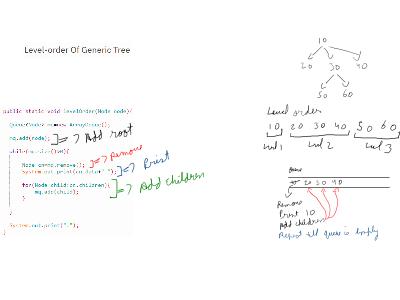 Level-order Of Generic Tree
public static void levelOrder(Node node){
Queue<Node> mq=new ArrayDeque<>();
mq.add(node); => Add root
while(mq.size()>0){
Node cn=mq.remove(); => Remove
System.out.print(cn.data+" "); => Print
for(Node child:cn.children){
mq.add(child); => Add children
}
}
System.out.print(".");
10
20 30 40
50 60
Level order
10, 20 30 40 50 60
lvl 1 lvl 2 lvl 3
Queue
10 20 30 40
Remove
Print 10
Add children
Repeat till queue is Empty